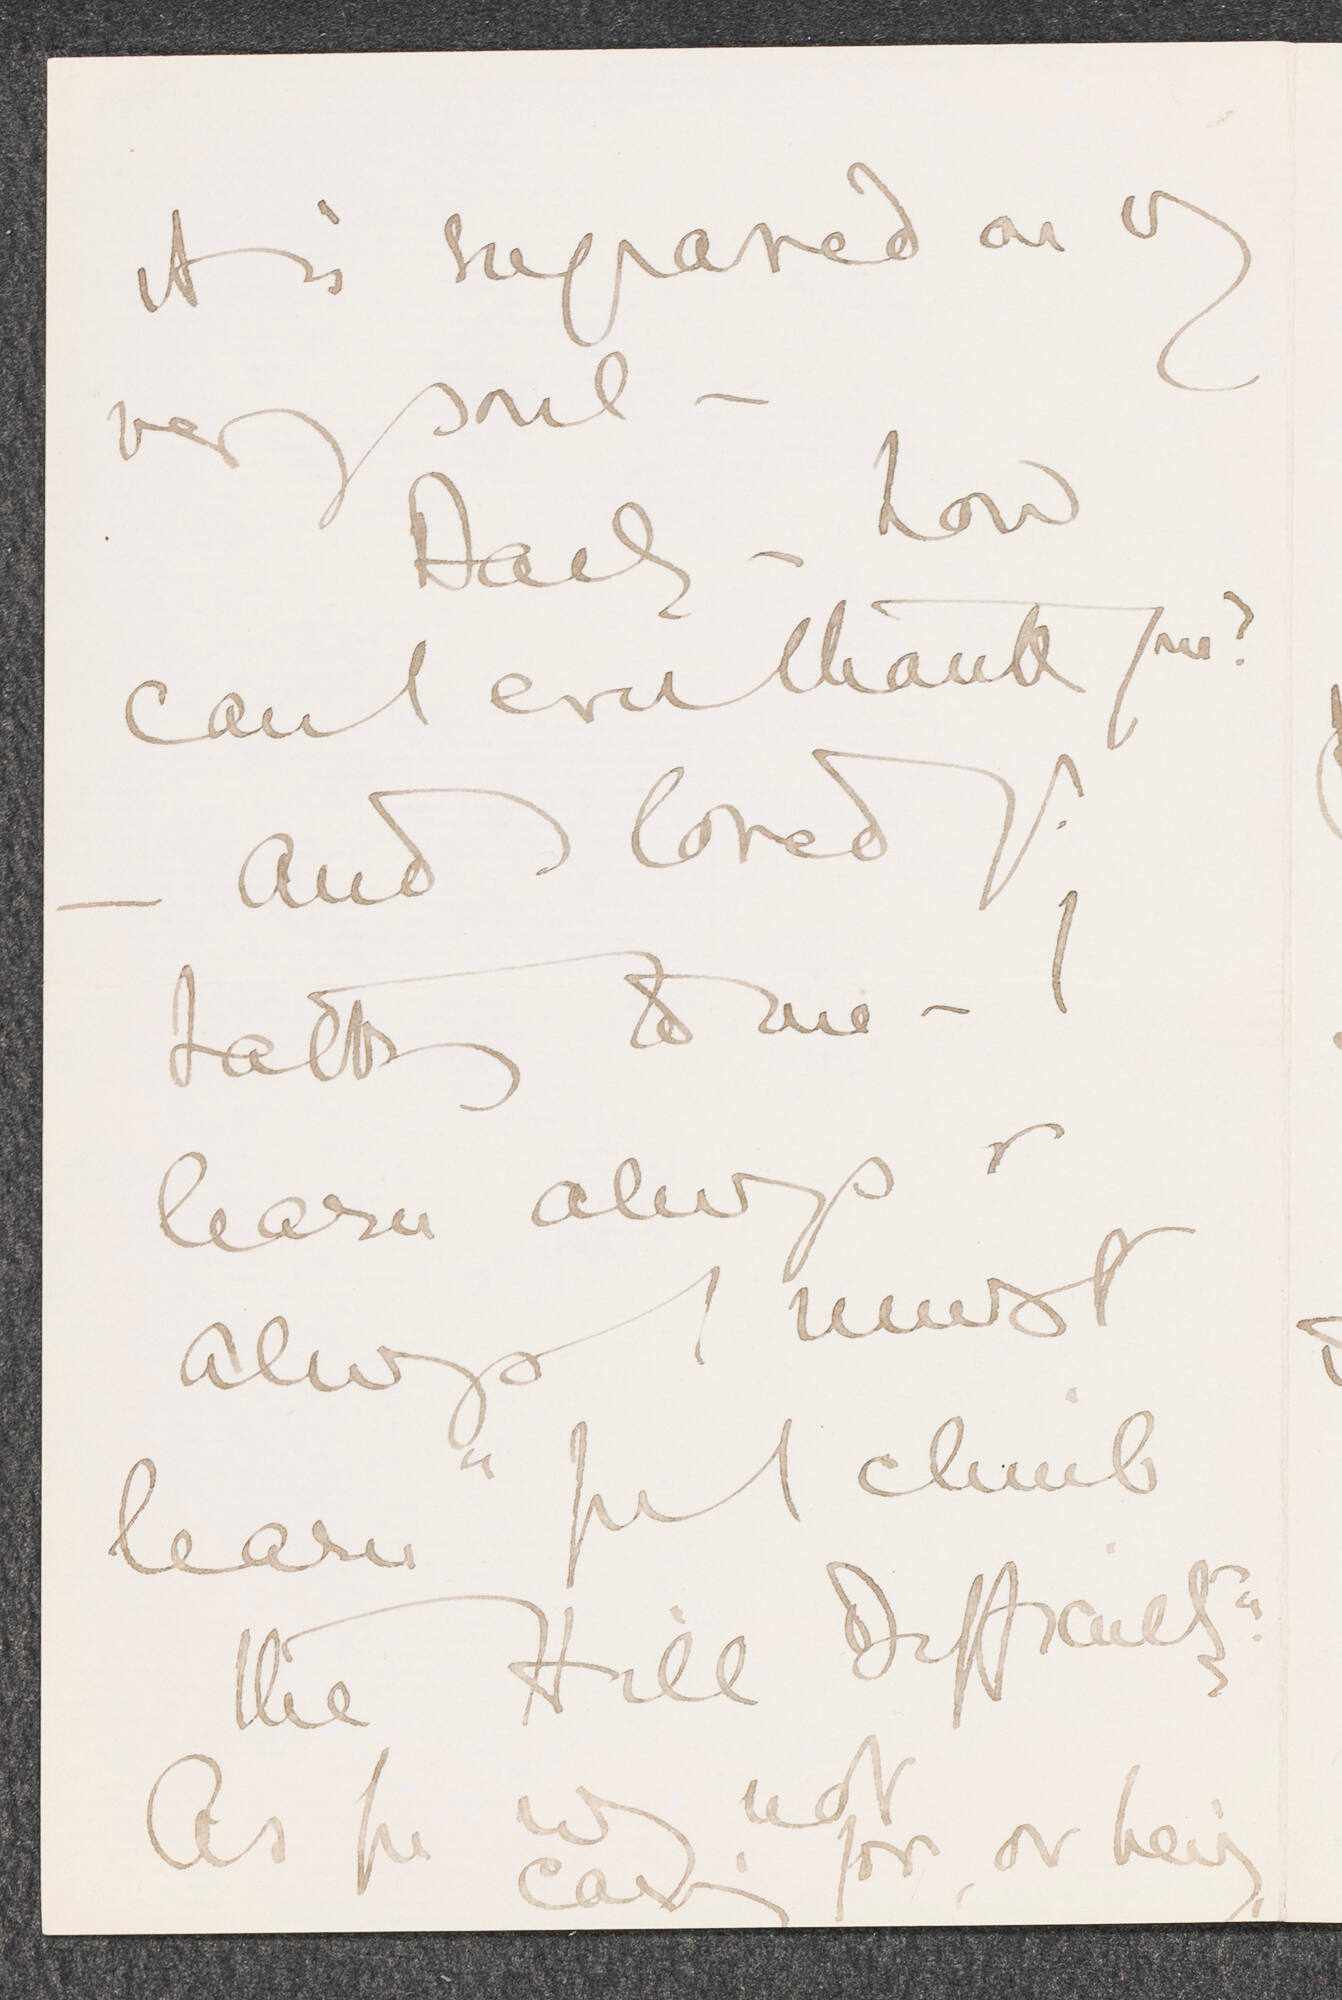 it is engraved on my
very soul –
– how
can I ever thank you?
– and I loved yr.
to me – I
learn always &
always I must
learn " for I climb
the Hill Difficulty".
As for my not
caring for, or being